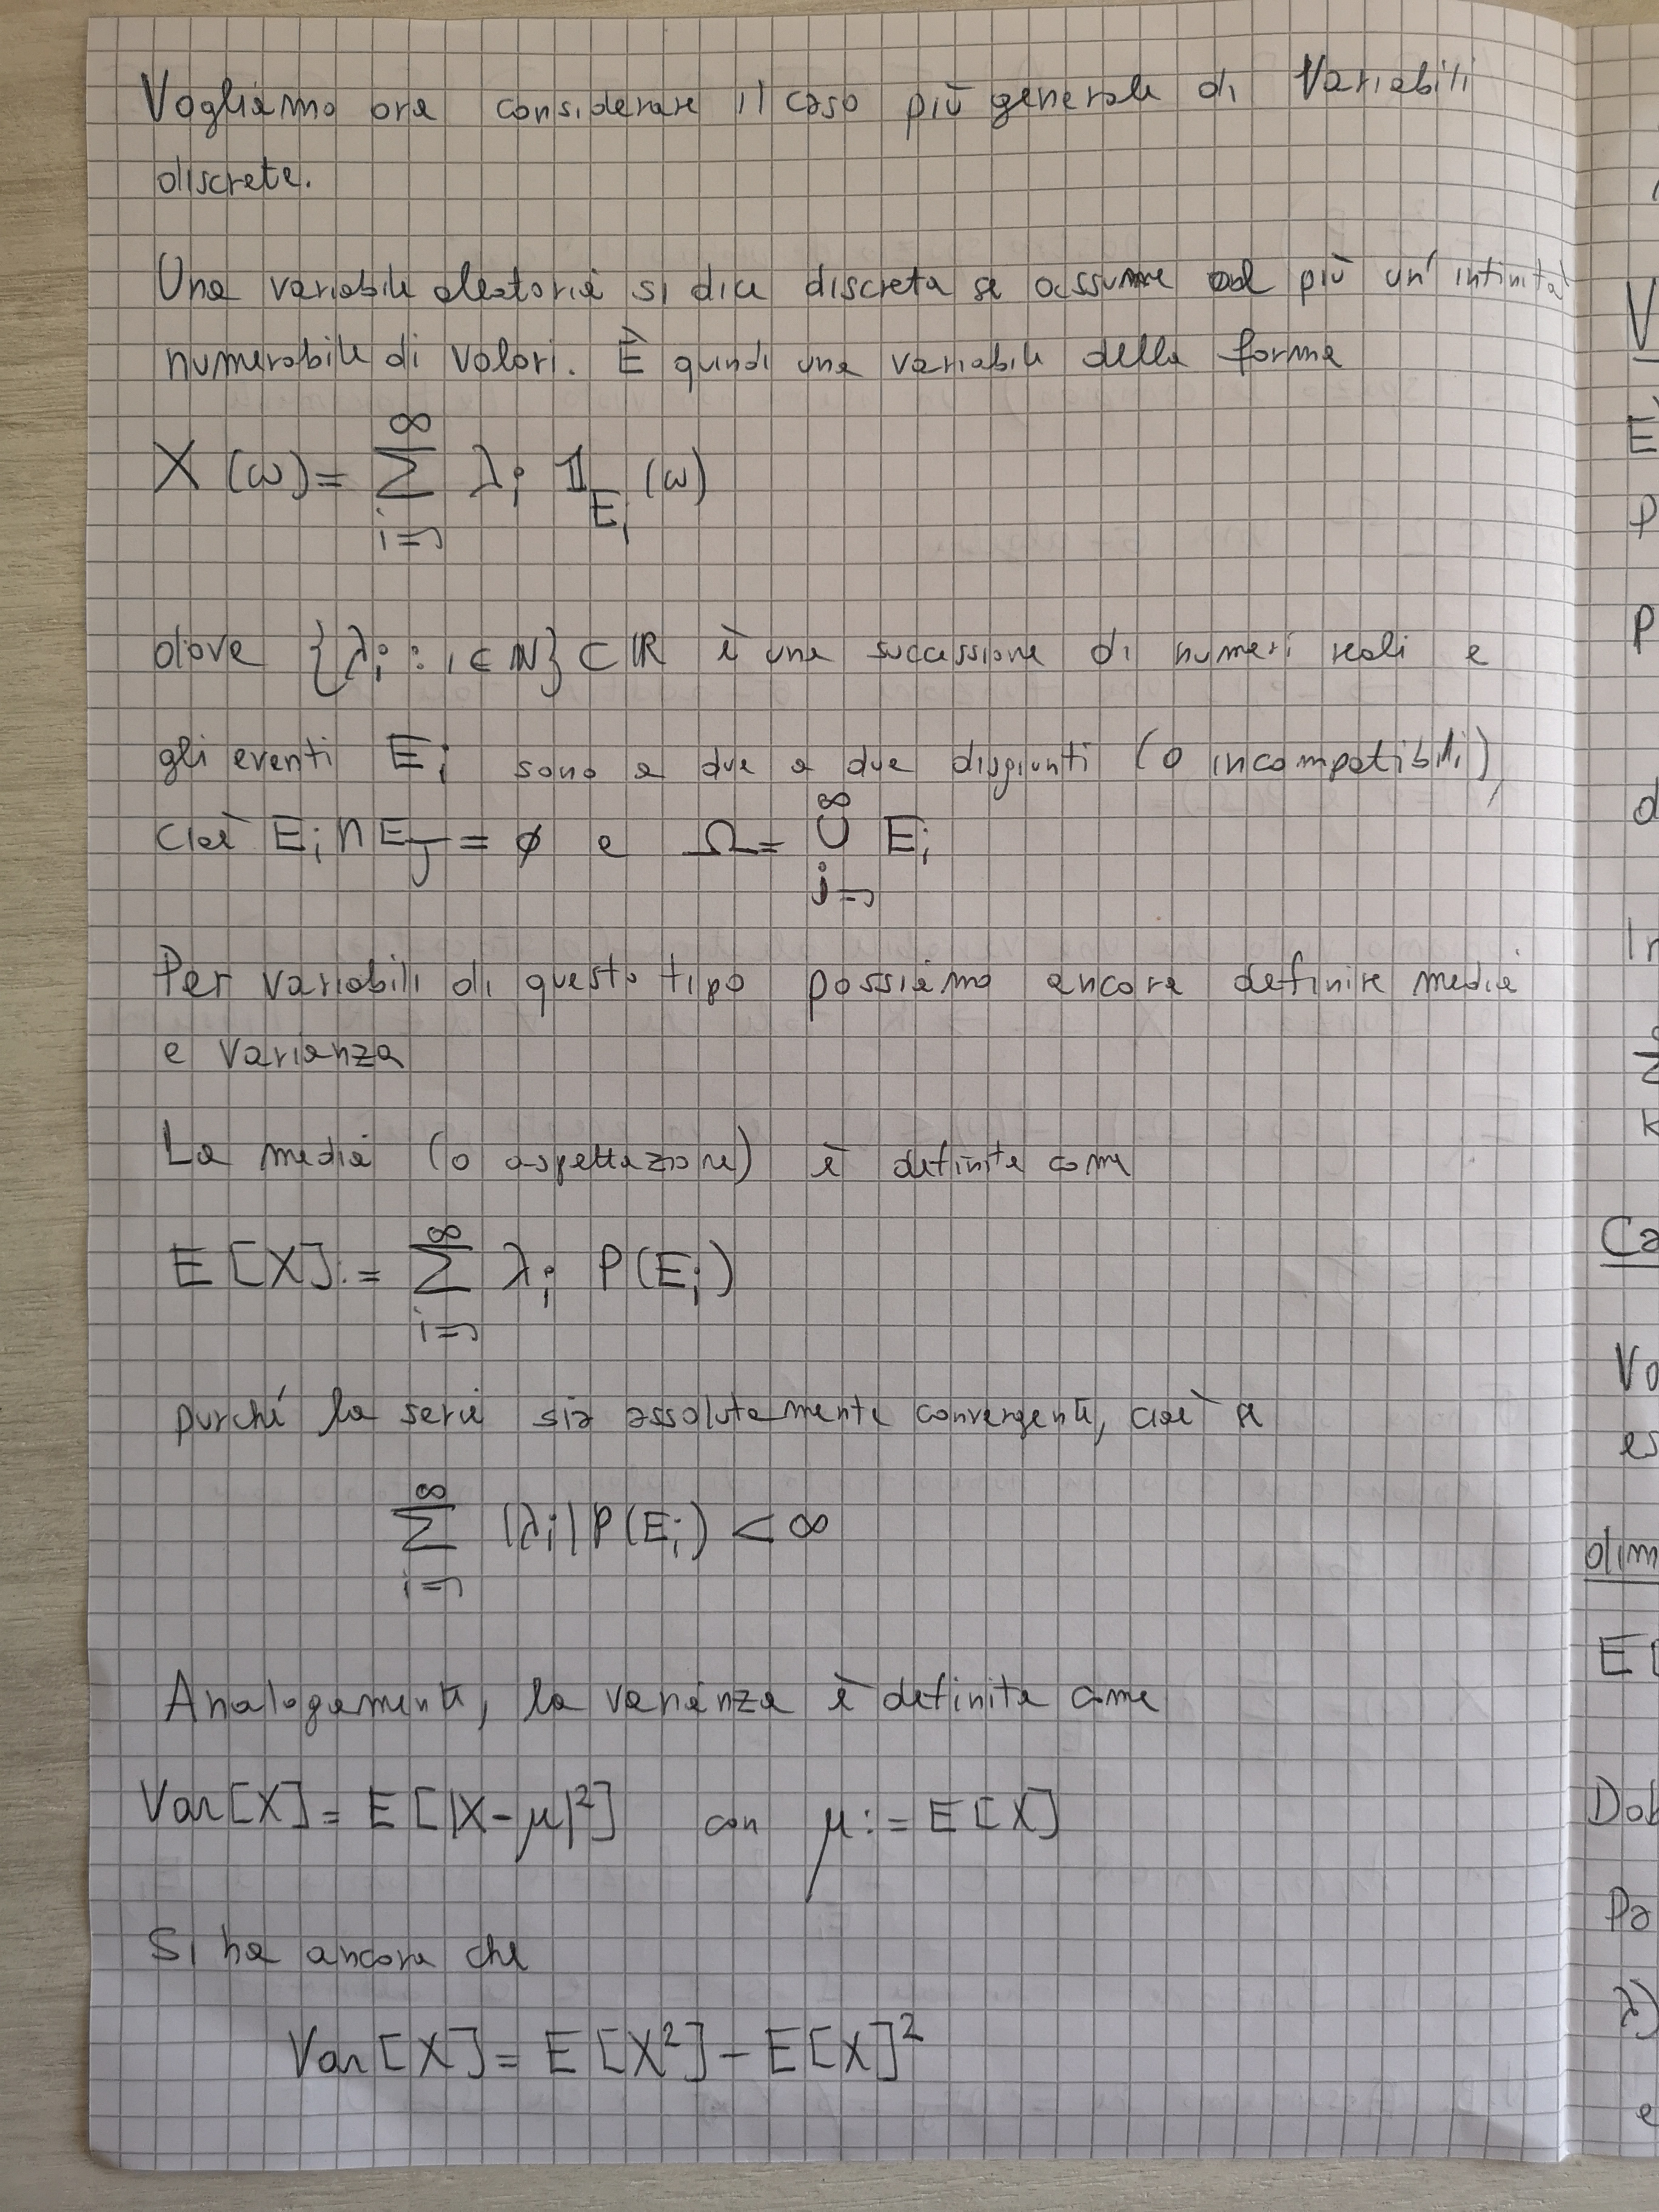 Vogliamo ora considerare il caso più generale di Variabili
discrete.
Una variabile aleatoria si dice discreta se assume al più un' infinità
numerabile di valori. È quindi una variabile della forma
X(ω) = ∑_{i=1}^{∞} λ_i 𝟙_{E_i}(ω)
dove {λ_i : i ∈ ℕ} ⊂ ℝ è una successione di numeri reali e
gli eventi E_i sono a due a due disgiunti (o incompatibili),
cioè E_i ∩ E_J = ø e Ω = ∪_{i=1}^{∞} E_i
Per variabili di questo tipo possiamo ancora definire media
e varianza
La media (o aspettazione) è definita come
E[X] := ∑_{i=1}^{∞} λ_i P(E_i)
purché la serie sia assolutamente convergente, cioè se
∑_{i=1}^{∞} |λ_i| P(E_i) < ∞
Analogamente, la varianza è definita come
Var[X] = E[|X-μ|²] con μ := E[X]
Si ha ancora che
Var[X] = E[X²] - E[X]²